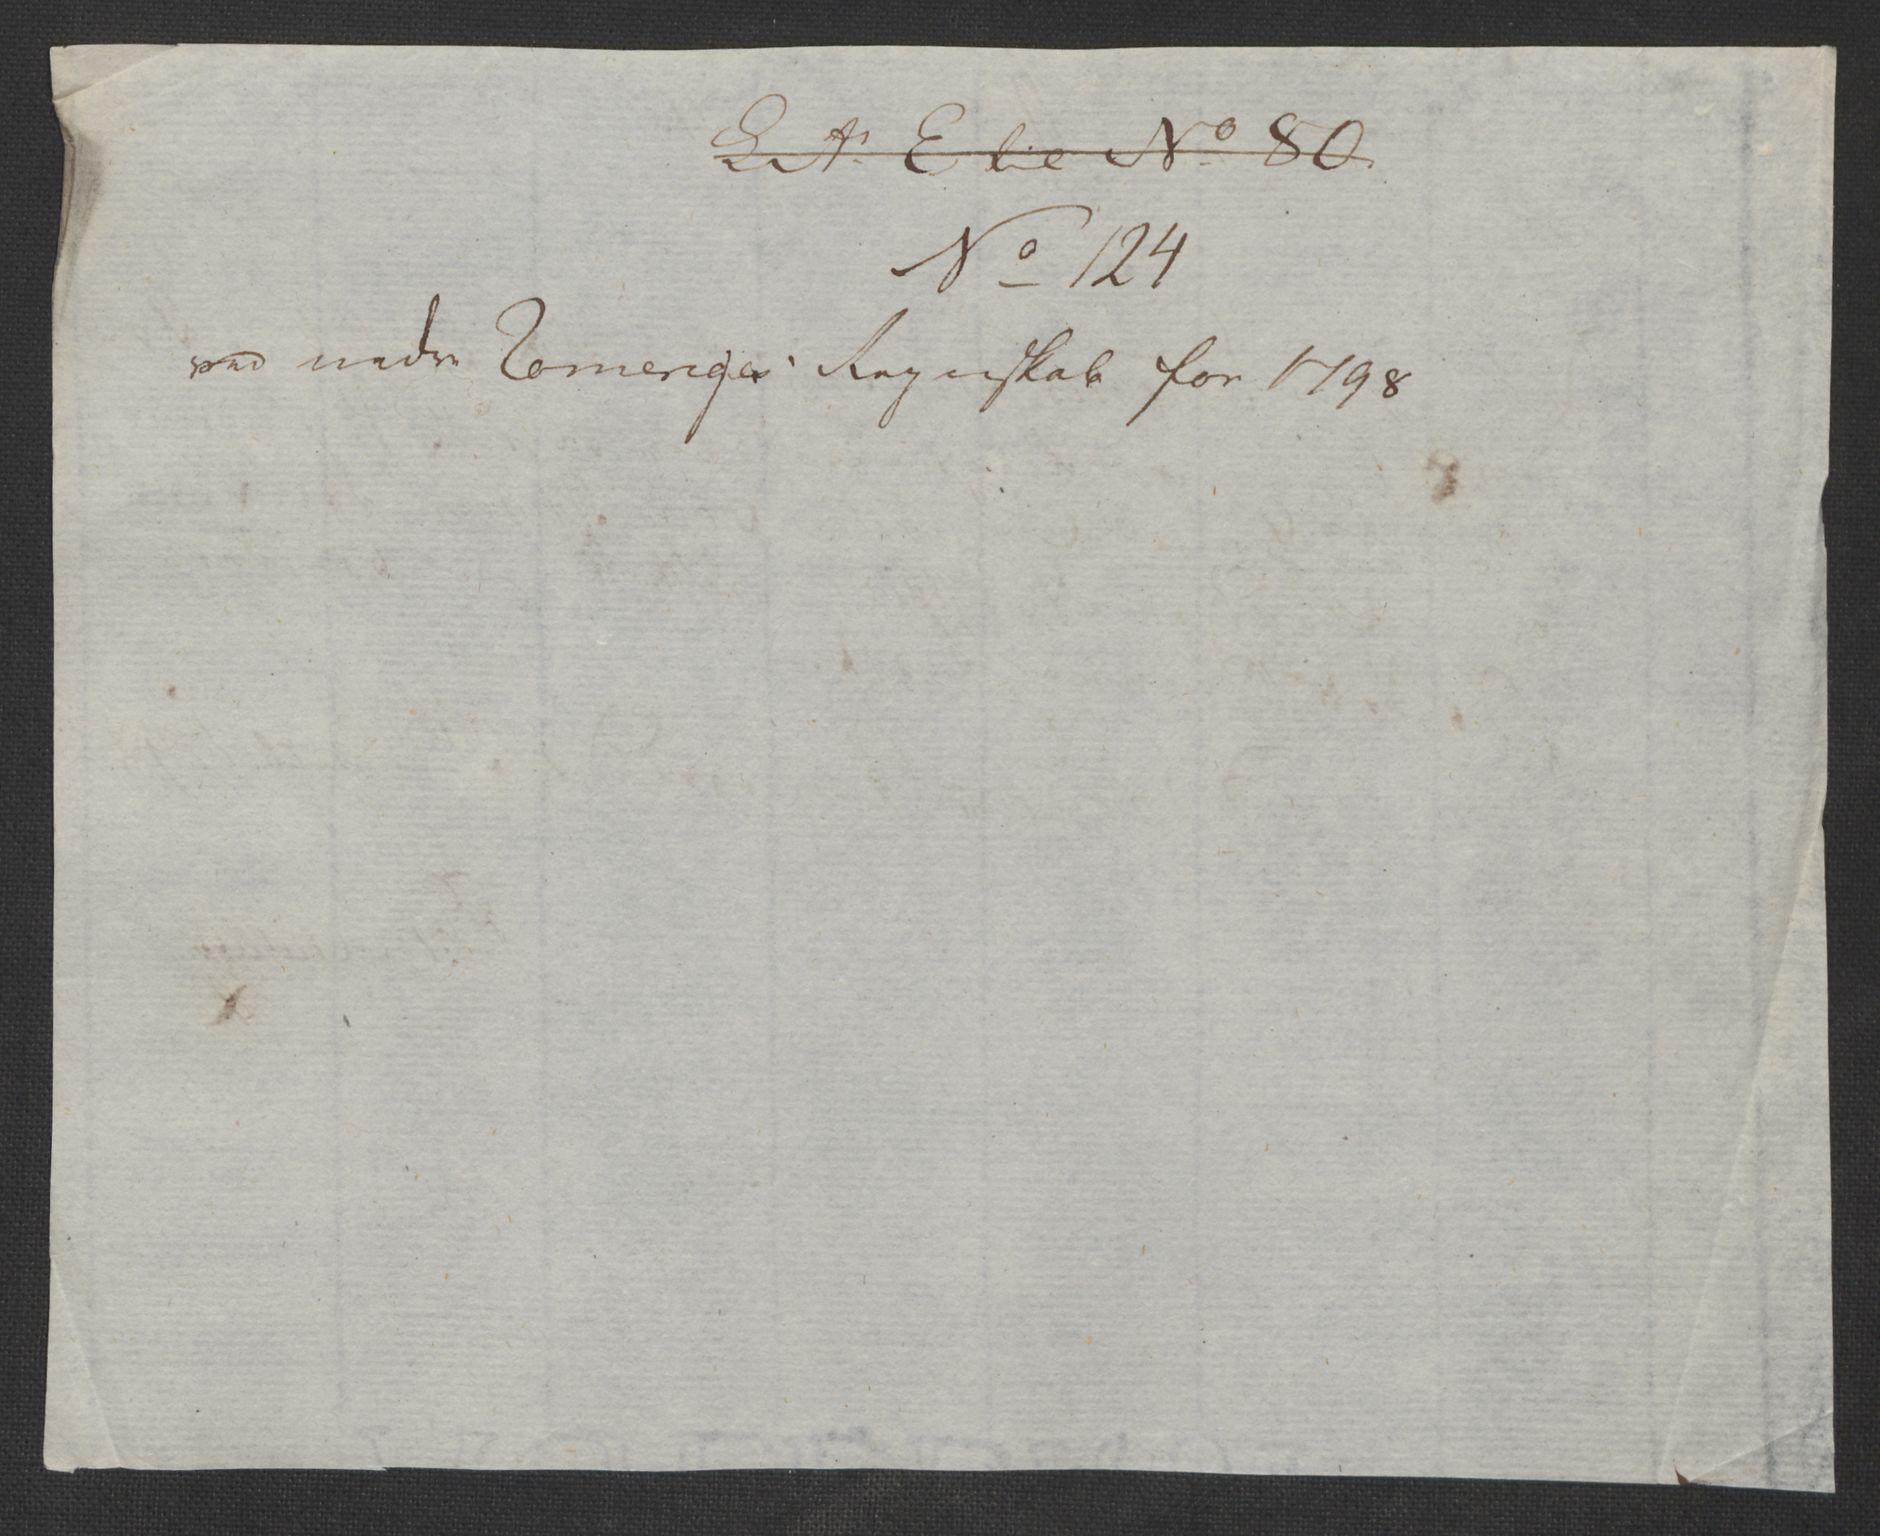 Lit. E lie No 80.
No 124
ved nedre Romeriges Regnskab for 1798